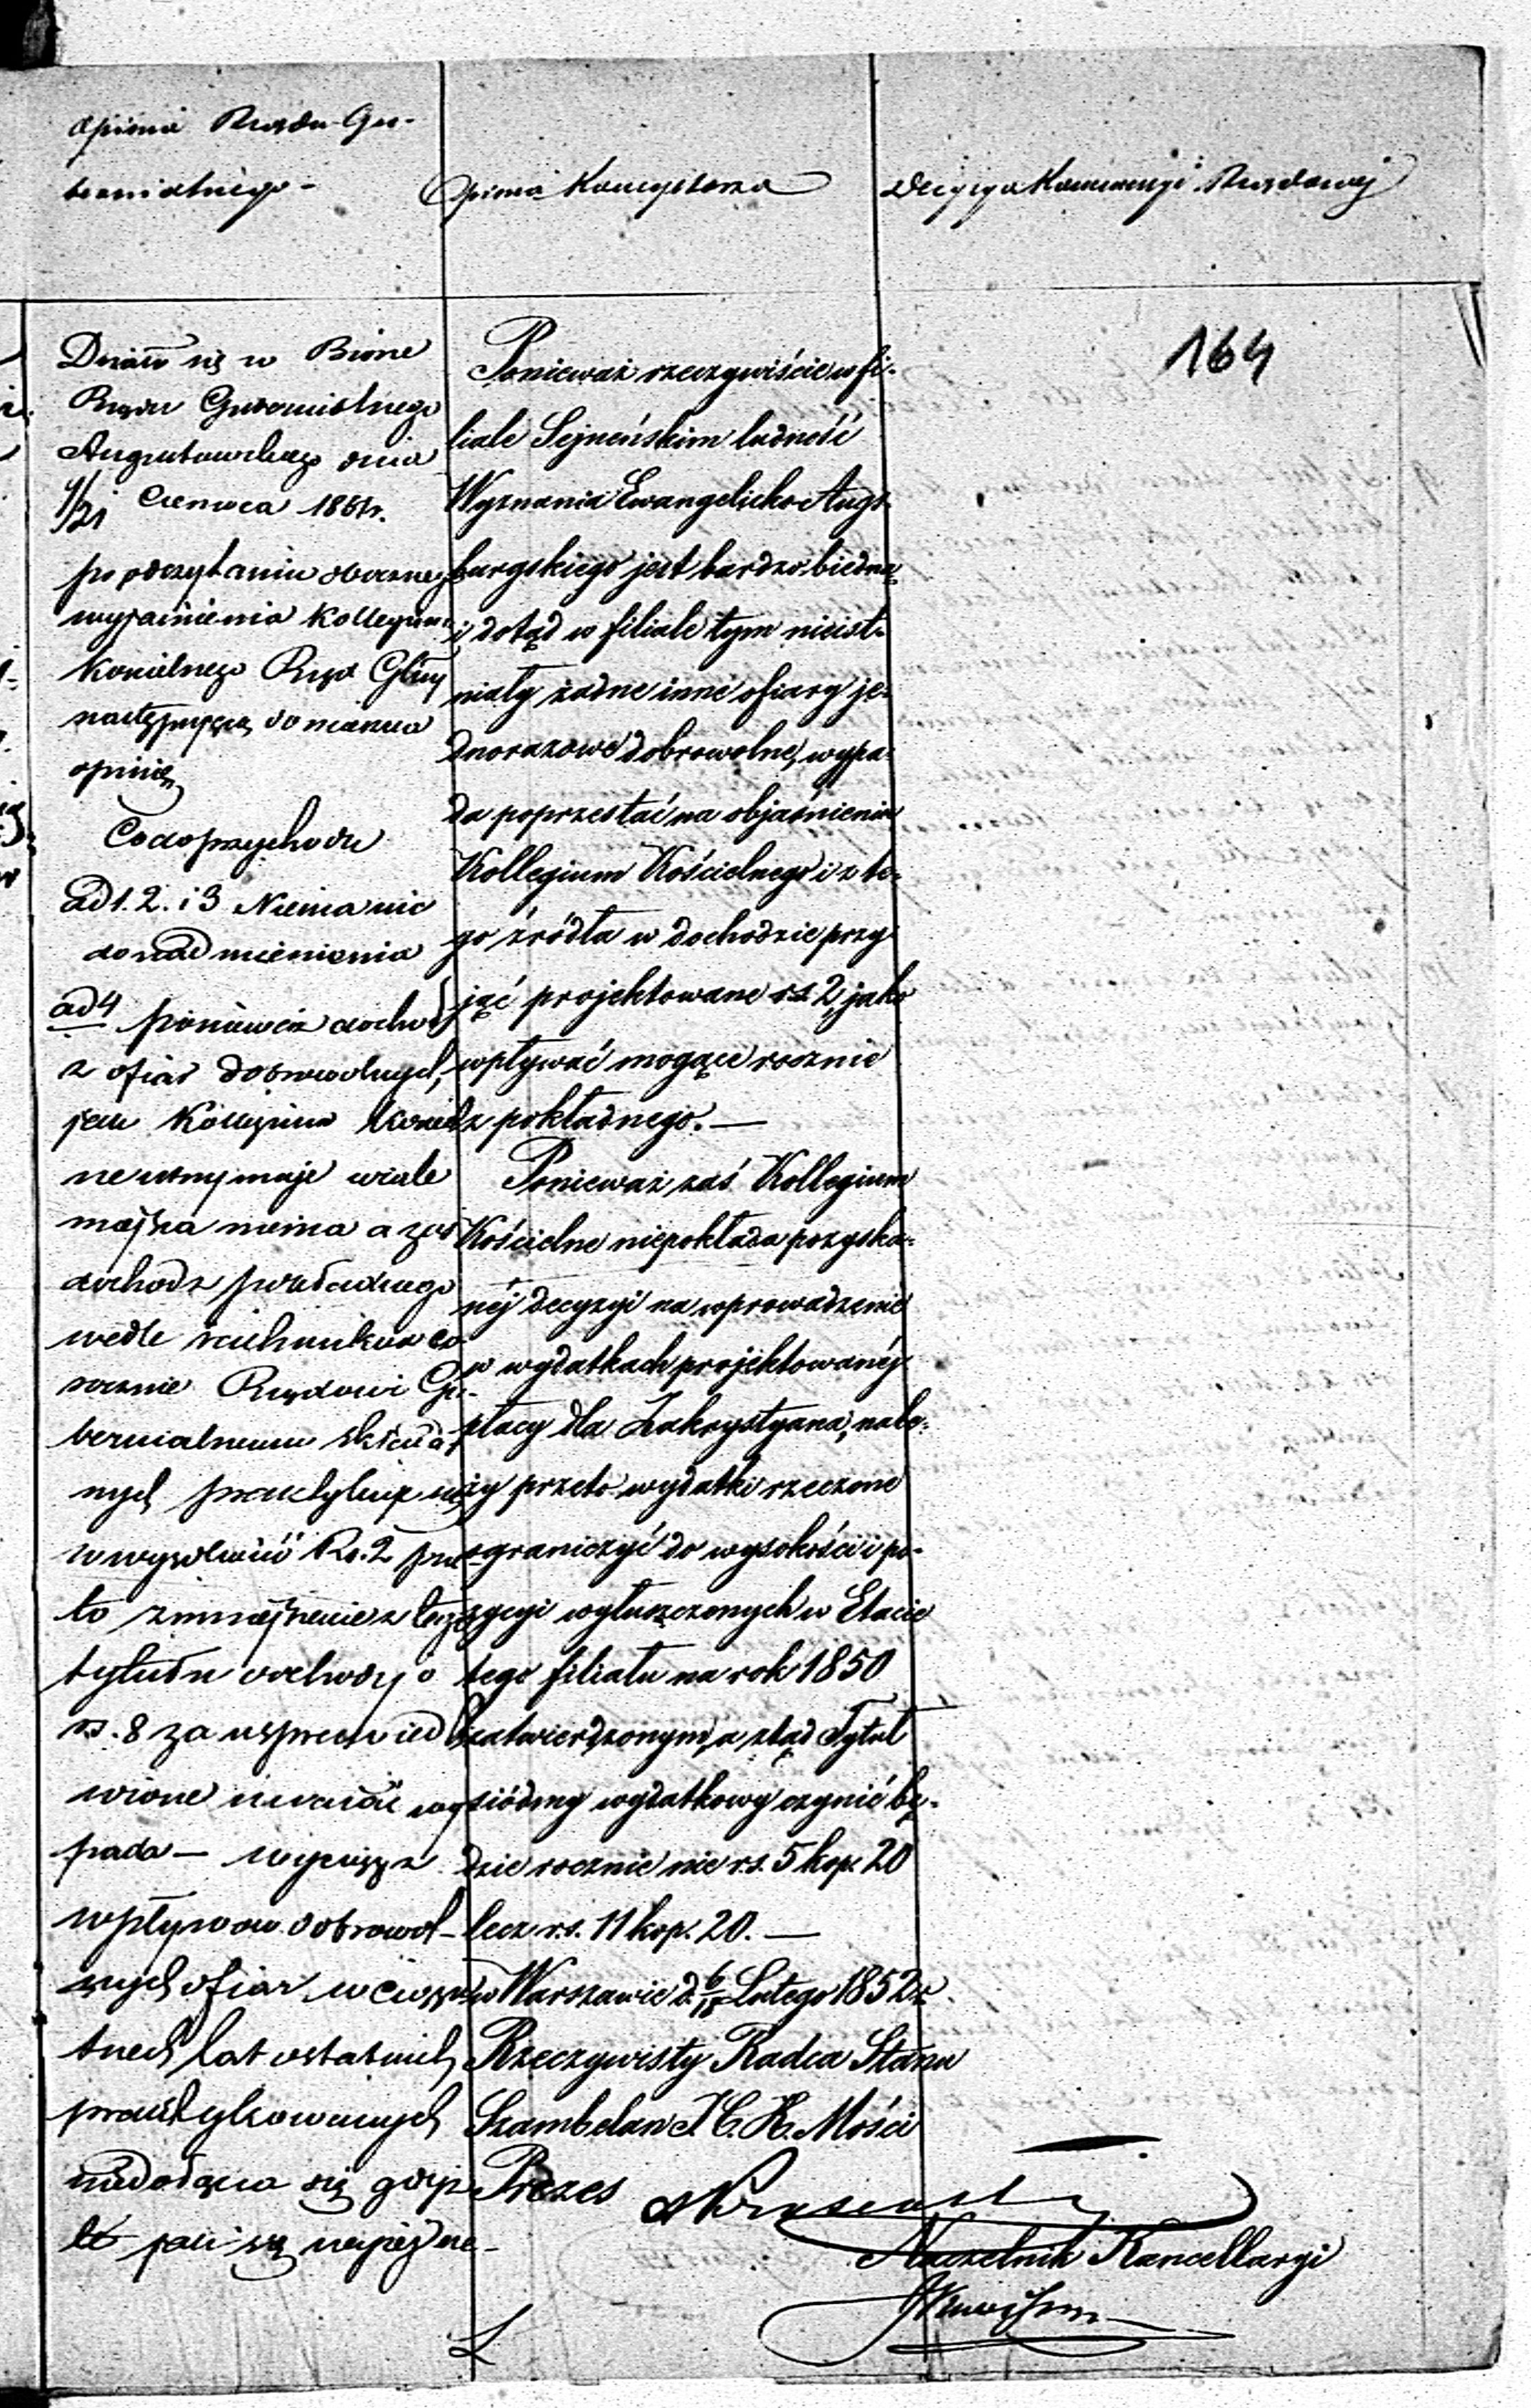 Opinia Rządu Gu-
bernialnego -
Opinia Konsystorza
Decyzya Kommissyi Rządowej
164
Działo się w Biórze
Rządu Gubernialnego
Augustowskiego dnia
9/21 Czerwca 1851 r.
po odczytaniu
wyjaśnienia Kollegium
Rząd Gbny
następującą
opinię
Co do przychodu
ad 1. 2. i 3 Niema nic
do nadmienienia
ad 4 ponieważ dochód
z ofiar dobrowolnych,
jak Kollegium Kościel
ne utrzymuje wcale
miejsca niema a zaś
dochód z pokładnego
wedle rachunków co
rocznie Rządowi Gu-
bernialnemu składa
nych praktykuje się
w wysokości Rs. 2 prze
to zmniejszenie z tego
tytułu dochodu o
rs. 8 za usprawied
wione uważać wy
pada —
wpływów dobrowol-
nych ofiar w ciągu
trzech lat ostatnich
praktykowanych
się gdyż
Ponieważ rzeczywiście w fi-
liale Sejneńskim ludność
Wyznania Ewangelicko Augs-
burgskiego jest bardzo biedna
i dotąd w filiale tym nieist-
niały żadne inne ofiary je-
dnorazowe dobrowolne, wypa-
da poprzestać na objaśnieniu
Kollegium Kościelnego i z te-
go źródła w dochodzie przy-
jąć projektowane rs. 2, jako
wpływać mogące rocznie
z pokładnego. —
Ponieważ zaś Kollegium
Kościelne niepokłada pozyska-
néj decyzyi na wprowadzenie
w wydatkach projektowanéj
płacy dla Zakrystyana, nale-
ży przeto wydatki rzeczone
ograniczyć do wysokości i po-
zycyi wyłuszczonych w Etacie
tego filiału na rok 1850
zatwierdzonym, a ztąd Tytuł
siódmy wydatkowy czynić bę-
dzie rocznie nie rs. 5 kop. 20
lecz rs. 11 kop. 20. —
w Warszawie d. 6/18 Lutego 1852 r.
Rzeczywisty Radca Stanu
Szambelan J. C. K. Mości
Prezes
Naczelnik Kancellaryi